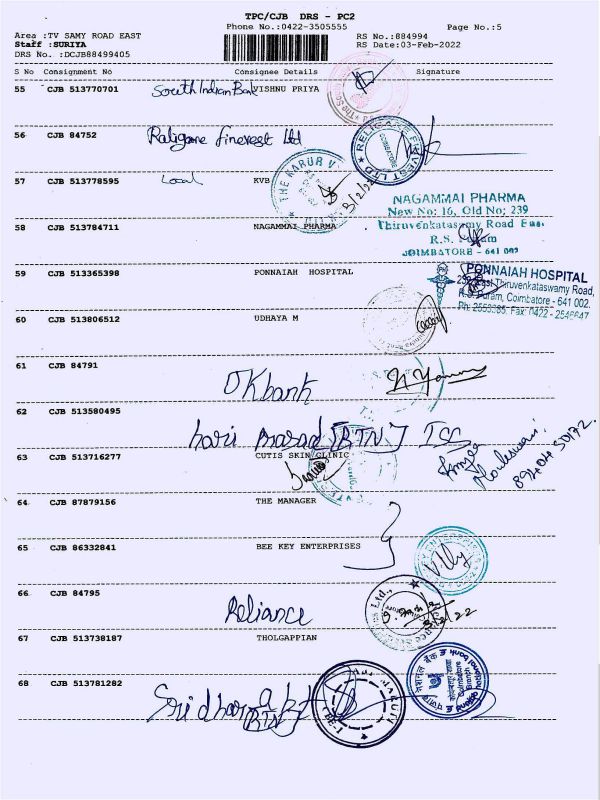 TPC/CJB DRS - PC2
Phone No.:0422-3505555 Page No.:5
Area :TV SAMY ROAD EAST RS No.:884994
Staff :SURIYA RS Date:03-Feb-2022
DRS No. :DCJB88499405
S No Consignment No Consignee Details Signature
55 CJB 513770701 South Indian Bank VISHNU PRIYA
56 CJB 84752 Religare finevest Ltd
RELIGARE FINVEST LTD
COIMBATORE
57 CJB 513778595 Local KVB
THE KARUR V
3/2/22
58 CJB 513784711 NAGAMMAI PHARMA
NAGAMMAI PHARMA
New No: 16, Old No; 239
Thiruvenkatasamy Road East
R.S.
COIMBATORE - 641 002
59 CJB 513365398 PONNAIAH HOSPITAL
PONNAIAH HOSPITAL
East Thiruvenkataswamy Road,
R.S. Puram, Coimbatore - 641 002.
60 CJB 513806512 UDHAYA M
61 CJB 84791
62 CJB 513580495
hari prasad (BTN)
63 CJB 513716277 CUTIS SKIN CLINIC
64 CJB 87879156 THE MANAGER
65 CJB 86332841 BEE KEY ENTERPRISES
66 CJB 84795 Reliance
3/2/22
67 CJB 513738187 THOLGAPPIAN
68 CJB 513781282
Sridharna
(BTN)